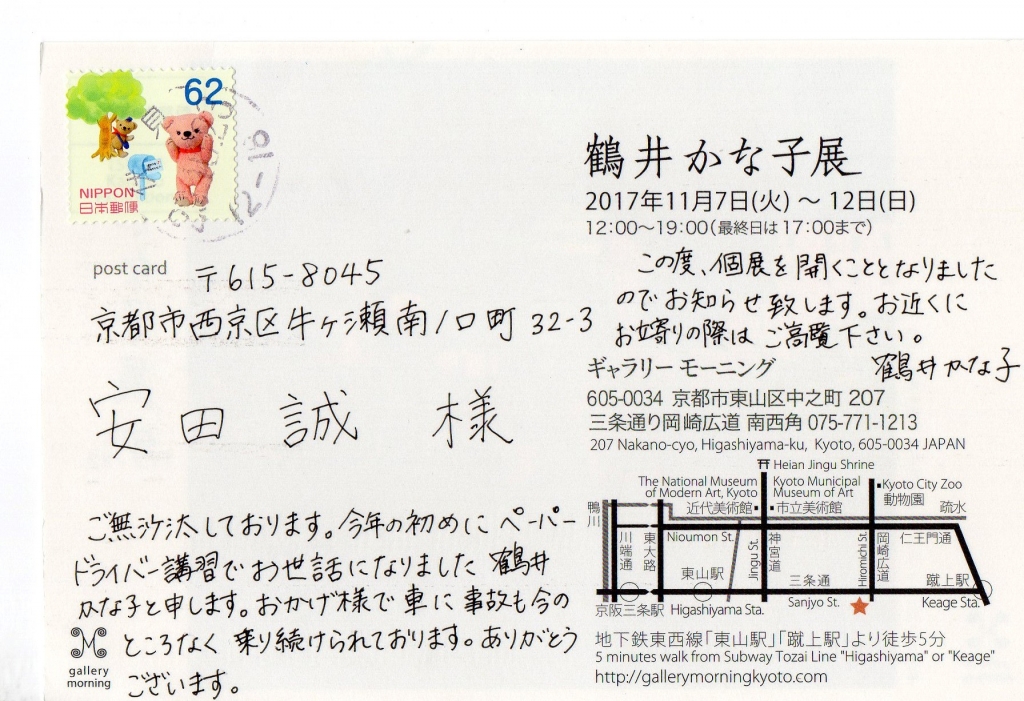 62
NIPPON
日本郵便
12-18
post card
〒615-8045
京都市西京区牛ヶ瀬南ノ口町 32-3
安田 誠 様
ご無沙汰しております。今年の初めに ペーパー
ドライバー講習でお世話になりました 鶴井
かな子と申します。おかげ様で車に事故も今の
ところなく 乗り続けられております。ありがとう
ございます。
gallery
morning
鶴井かな子展
2017年11月7日(火) 〜 12日(日)
12:00〜19:00(最終日は17:00まで)
この度、個展を開くこととなりました
のでお知らせ致します。お近くに
お立寄りの際は ご高覧下さい。
鶴井かな子
ギャラリー モーニング
605-0034 京都市東山区中之町 207
三条通り岡崎広道 南西角 075-771-1213
207 Nakano-cyo, Higashiyama-ku, Kyoto, 605-0034 JAPAN
Heian Jingu Shrine
The National Museum
of Modern Art, Kyoto
近代美術館
Kyoto Municipal
Museum of Art
市立美術館
Kyoto City Zoo
動物園
疏水
鴨川
川端通
東大路
Nioumon St.
Jingu St.
神宮道
Hiromichi St.
岡崎広道
仁王門通
東山駅
三条通
蹴上駅
京阪三条駅
Higashiyama Sta.
Sanjyo St.
Keage Sta.
地下鉄東西線「東山駅」「蹴上駅」より徒歩5分
5 minutes walk from Subway Tozai Line "Higashiyama" or "Keage"
http://gallerymorningkyoto.com